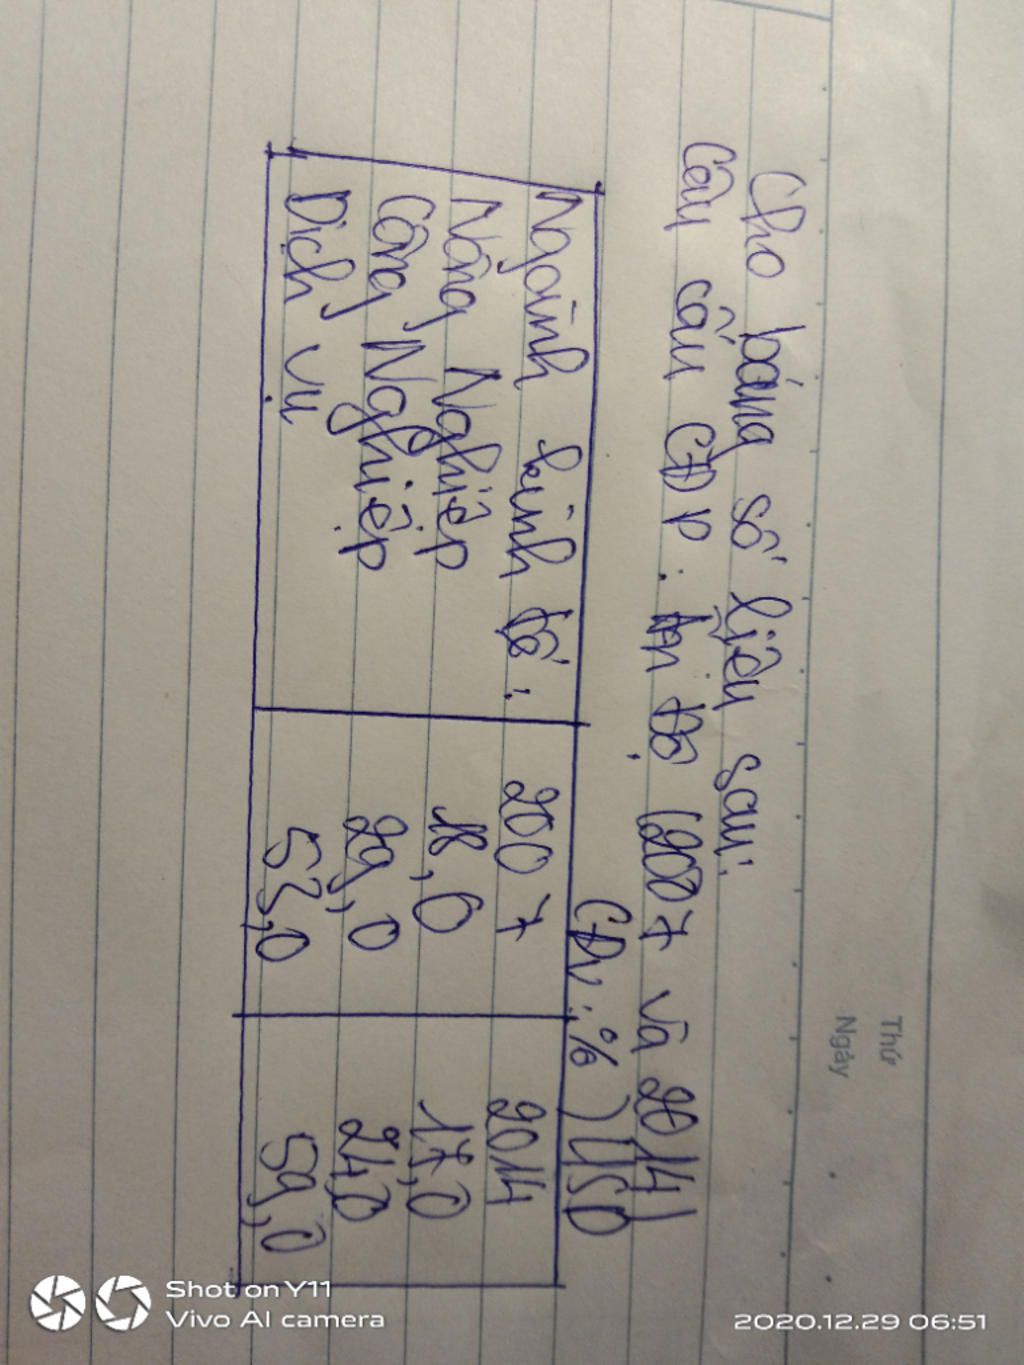 Thứ
Ngày
Cho bảng số liệu sau:
Cơ cấu GDP. Ấn Độ (2007 và 2014)
(ĐV: %) USD
Ngành kinh tế: 2007 2014
Nông Nghiệp 18,0 17,0
Công Nghiệp 29,0 24,0
Dịch vụ 53,0 59,0
Shot on Y11
Vivo AI camera
2020.12.29 06:51